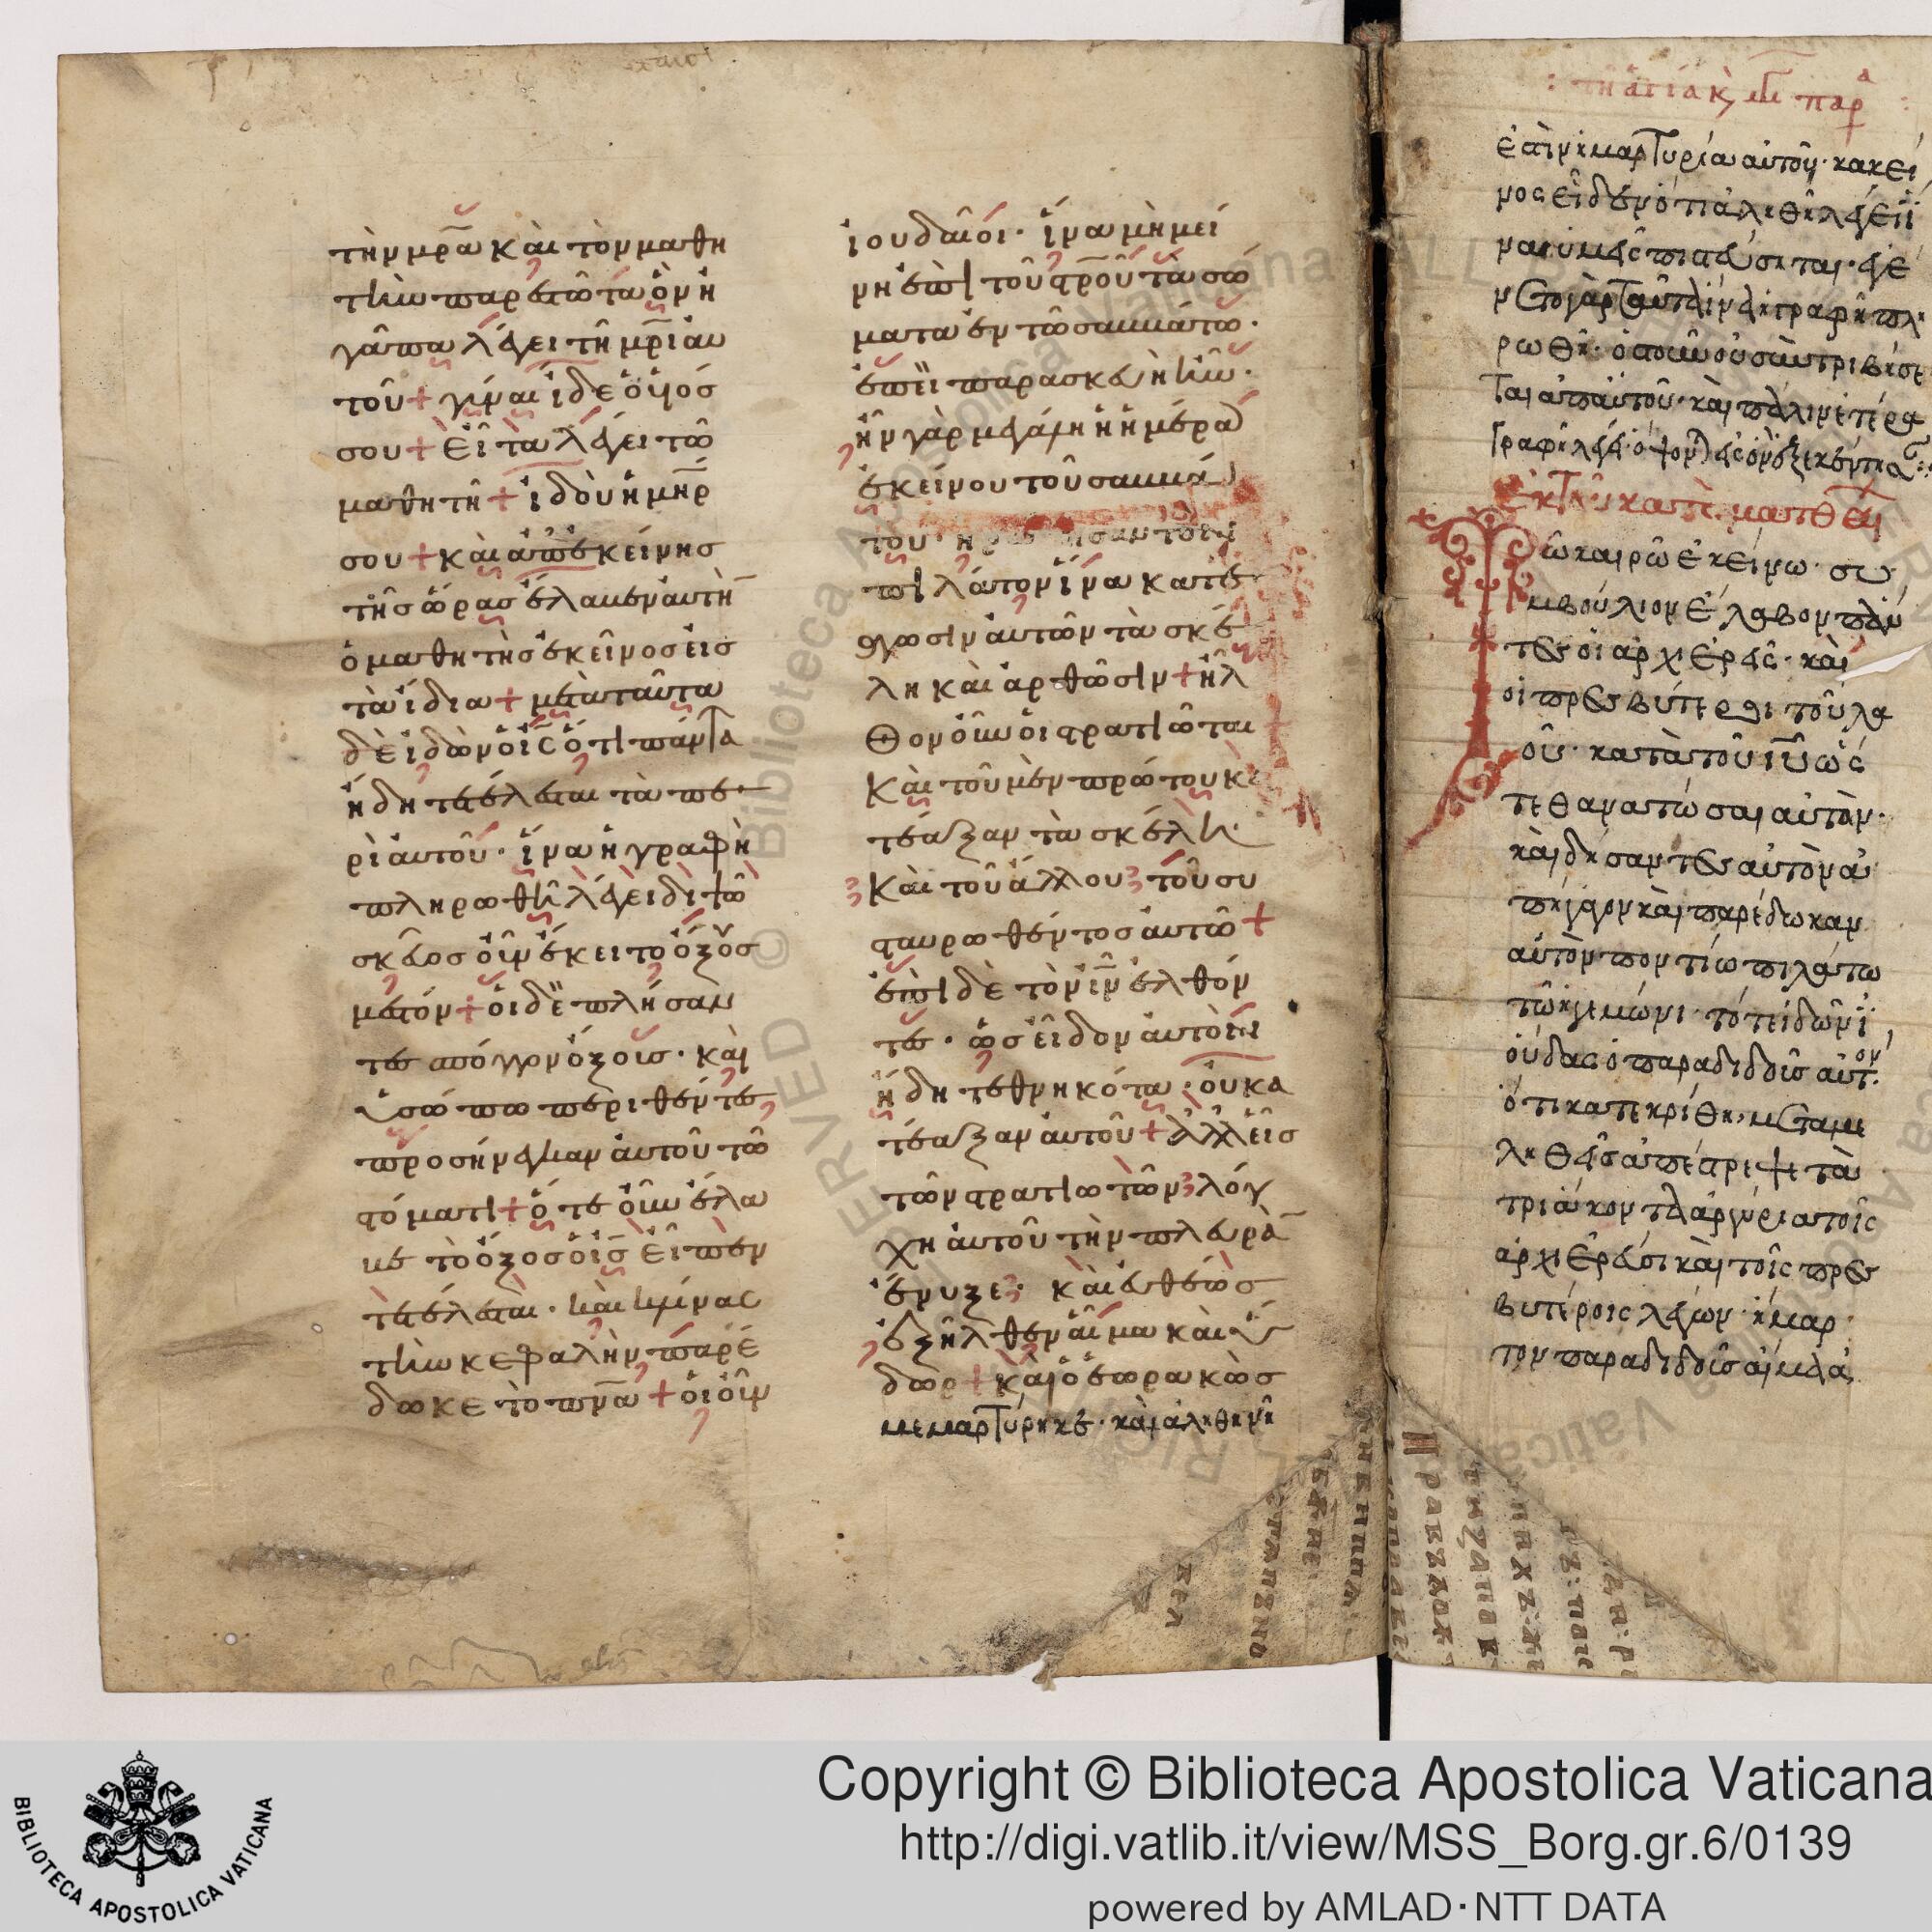 τὴν μρ̅α καὶ τὸν μαθη
τὴν παρεστῶτα ὃν ἠ
γάπα λέγει τῆ μρ̅ι αυ
του + γύναι ἴδε ὁ υἱός
σου + εἶτα λέγει τῶ
μαθητῆ + ἰδοὺ ἡ μη̅ρ
σου + καὶ ἀπ' ἐκείνησ
τῆσ ὥρασ ἔλαβεν αὐτὴ̅
ὁ μαθητὴσ ἐκεῖνοσ εἰσ
τὰ ἴδια + μετὰ ταῦτα
δὲ εἰδὼν ὁ ις̅ ὅτι πάντα
ἤδη τετέλεσται τὰ πε
ρὶ αὐτοῦ· ἵνα ἡ γραφὴ
πληρωθῆ λέγει διψῶ
σκεῦοσ οὖν ἔκειτο ὄξουσ
μεστόν + οἱ δὲ πλήσαν
τεσ σπόγγον ὄξουσ· καὶ
ὑσσώπω περιθέντεσ
προσήνεγκαν αὐτοῦ τῶ
στόματι + ὅτε οὖν ἔλα
βε τὸ ὄξοσ ὁ ις̅ εἶπεν
τετέλεσται· καὶ κλίνασ
τὴν κεφαλὴν παρέ
δωκε τὸ πνα̅ + οἱ οὖν
ἰουδαῖοι· ἵνα μὴ μεί
νη ἐπὶ τοῦ στρο̅υ τὰ σώ
ματα ἐν τῶ σαββάτω·
ἐπεὶ παρασκευὴ ἦν·
ἦν γὰρ μεγάλη ἡ ἡμέρα
ἐκείνου τοῦ σαββά
του· ἠρώτησαν τὸν
πιλάτον ἵνα κατε
αγῶσιν αὐτῶν τὰ σκέ
λη καὶ ἀρθῶσιν + ἦλ
θον οὖν οἱ στρατιῶται
καὶ τοῦ μὲν πρώτου κα
τέαξαν τὰ σκέλη·
καὶ τοῦ ἄλλου τοῦ συ
σταυρωθέντοσ αὐτῶ +
ἐπὶ δὲ τὸν ιν̅ ἐλθόν
τεσ· ὡσ εἶδον αὐτὸν
ἤδη τεθνηκότα· οὐ κα
τέαξαν αὐτοῦ + ἀλλ' εἷσ
τῶν στρατιωτῶν λόγ
χη αὐτοῦ τὴν πλευρὰ̅
ἔνυξε· καὶ εὐθέωσ
ἐξῆλθεν αἷμα καὶ ὕ
δωρ + καὶ ὁ ἑωρακὼσ
μεμαρτύρηκε· καὶ ἀληθινὴ
: τη αγία κ, μγ παρα :
ἐστὶν ἡ μαρτυρία αὐτοῦ· κακεῖ
νος εἶδεν ὅτι ἀληθῆ λέγει ἵ
να ὑμεῖς πιστεύσηται· ἐγέ
νετο γὰρ ταῦτα ἵνα ἡ γραφὴ πλη
ρωθῆ· ὀστοῦν οὐ συντριβήσε
ται ἀπ' αὐτοῦ· καὶ πάλιν ἑτέρα
γραφὴ λέγει· ὄψονται εἰς ὃν ἐξεκέντησαν
Ἐκ τοῦ κατὰ ματθαι
Τῶ καιρῶ ἐκείνω· συ
μβούλιον ἔλαβον πάν
τεσ οἱ ἀρχιερεῖς· καὶ
οἱ πρεσβύτεροι τοῦ λα
οῦ· κατὰ τοῦ ιυ̅ ὥς
τε θανατῶσαι αὐτὸν·
καὶ δήσαντεσ αὐτὸν ἀ
πήγαγον καὶ παρέδωκαν
αὐτὸν ποντίω πιλάτω
τῶ ἡγεμώνι· τότε ἰδὼν ἰ
ούδας ὁ παραδιδοὺσ αὐτον
ὅτι κατεκρίθη, μεταμε
ληθεὶσ ἀπέστρεψε τὰ
τριάκοντα ἀργύρια τοῖς
ἀρχιερεῦσι καὶ τοῖς πρεσ
βυτέροις λέγων· ἥμαρ
τον παραδιδοὺσ αἷμα ἀ
Copyright © Biblioteca Apostolica Vaticana
http://digi.vatlib.it/view/MSS_Borg.gr.6/0139
powered by AMLAD·NTT DATA
BIBLIOTECA APOSTOLICA VATICANA